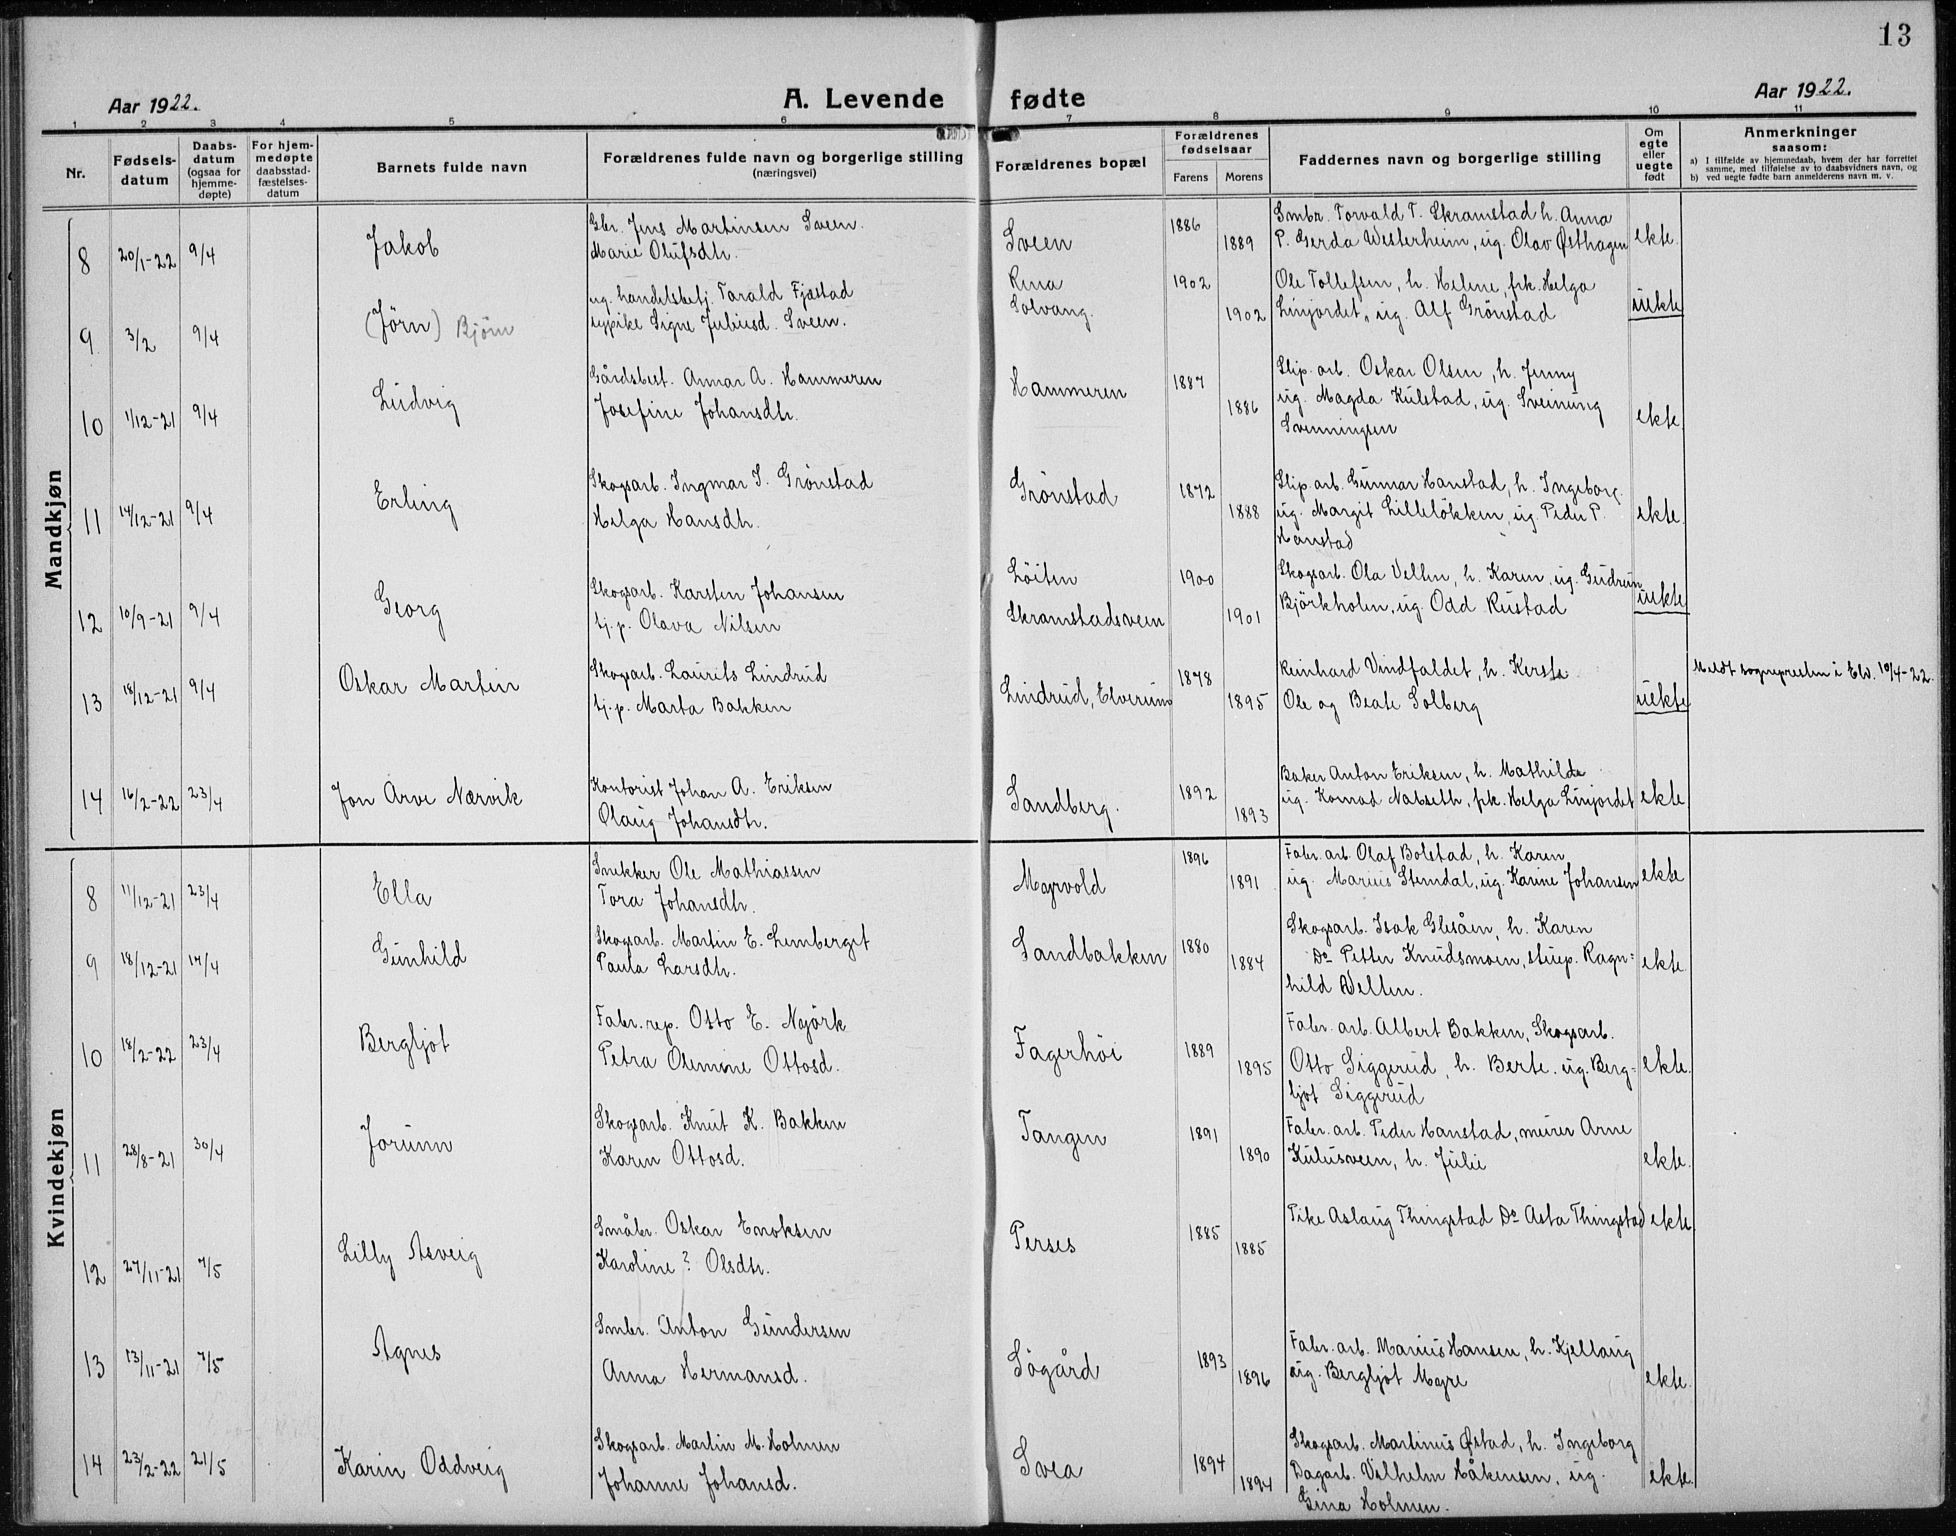 13
Aar 1922.
A. Levende fødte
Aar 1922.
1 2 3 4 5 6 7 8 9 10 11
Nr.
Fødsels-
datum
Daabs-
datum
(ogsaa for
hjemme-
døpte)
For hjem-
medøpte
daabsstad-
fæstelses-
datum
Barnets fulde navn
Forældrenes fulde navn og borgerlige stilling
(næringsvei)
Forældrenes bopæl
Forældrenes
fødselsaar
Farens Morens
Faddernes navn og borgerlige stilling
Om
egte
eller
uegte
født
Anmerkninger
saasom:
a) I tilfælde av hjemmedaab, hvem der har forrettet
samme, med tilføielse av to daabsvidners navn, og
b) ved uegte fødte barn anmelderens navn m. v.
Mandkjøn
8 20/1-22 9/4 Jakob
Gbr. Jens Martinsen Sveen.
Marie Olufsdtr.
Sveen 1886 1889
Smbr. Torvald T. Skramstad h. Anna
P. Gerda Westerheim, ug. Olav Østhagen
ekte.
9 3/2 9/4 (Jörn) Bjørn
ug. handelsbetj. Torald Fjæstad
sypike Signe Juliusd. Sveen.
Rena
Solvang. 1902 1902
Ole Tollefsen, h. Helene, frk. Helga
Linjordet, ug. Alf Grönstad
uekte
10 1/12-21 9/4 Ludvig
Gårdsbest. Annar A. Hammeren
Josefine Johansdtr.
Hammeren 1887 1886
Slip. arb. Oskar Olsen, h. Jenny
ug. Magda Kulstad, ug. Sveinung
Svenningsen
ekte.
11 14/12-21 9/4 Erling
Skogsarb. Ingmar I. Grönstad
Helga Hansdtr.
Grönstad 1872 1888
Slip. arb. Gunnar Hanstad, h. Ingeborg.
ug. Margit Lillelökken, ug. Peder P.
Hanstad
ekte.
12 10/9-21 9/4 Georg
Skogsarb. Karsten Johansen
tj.p. Olava Nilsen
Löiten
Skramstadsveen 1900 1901
Skogsarb. Ola Velten, h. Karen, ug. Gudrun
Björkholen, ug. Odd Rustad
uekte
13 18/12-21 9/4 Oskar Martin
Skogsarb. Laurits Lindrud
tj.p. Marta Bakken
Lindrud, Elverum 1878 1895
Reinhard Vindfaldet, h. Kerste
Ole og Beate Solberg
uekte
Meldt sognepresten i Elv. 10/4-22.
14 16/2-22 23/4 Jon Arve Nærvik
Kontorist Johan A. Eriksen
Olaug Johansdtr.
Sandberg. 1892 1893
Baker Anton Eriksen, h. Mathilde
ug. Konrad Natseth, frk. Helga Linjordet
ekte.
Kvindekjøn
8 11/12-21 23/4 Ella
Snekker Ole Mathiassen
Tora Johansdtr.
Myrvold 1896 1891
Fabr. arb. Olaf Bolstad, h. Karen
ug. Marius Stendal, ug. Karine Johansen
ekte
9 18/12-21 17/4 Gunhild
Skogsarb. Martin E. Lemberget
Paula Larsdtr.
Sandbakken 1880 1884
Skogsarb. Isak Glesåen, h. Karen
Do Petter Knudsmoen, stuep. Ragn=
hild Velten.
ekte.
10 18/2-22 23/4 Bergljot
Fabr. rep. Otto E. Nyörk
Petra Olemine Ottosd.
Fagerhöi 1889 1895
Fabr. arb. Albert Bakken, Skogsarb.
Otto Siggerud, h. Berte. ug. Berg=
ljot Siggerud
ekte.
11 28/8-21 30/4 Jorunn
Skogsarb. Knut K. Bakken
Karen Ottosd.
Tangen 1891 1890
Fabr. arb. Peder Hanstad, murer Arne
Kulusveen, h. Julie
ekte.
12 27/11-21 7/5 Lilly Asveig
Småbr. Oskar Enoksen
Karoline? Olsdtr.
Perses 1885 1885
Pike Aslaug Thingstad Do Asta Thingstad
ekte.
13 13/11-21 7/5 Agnes
Smbr. Anton Gundersen
Anna Hermansd.
Sögård 1893 1896
Fabr. arb. Marius Hansen, h. Kjellaug
ug. Bergljot Myre
ekte.
14 23/2-22 21/5 Karin Oddveig
Skogsarb. Martin M. Holmen
Johanne Johansd.
Svea 1894 1894
Skogsarb. Martinus Østad, h. Ingeborg
Dagarb. Vilhelm Håkensen, ug.
Gina Holmen.
ekte.